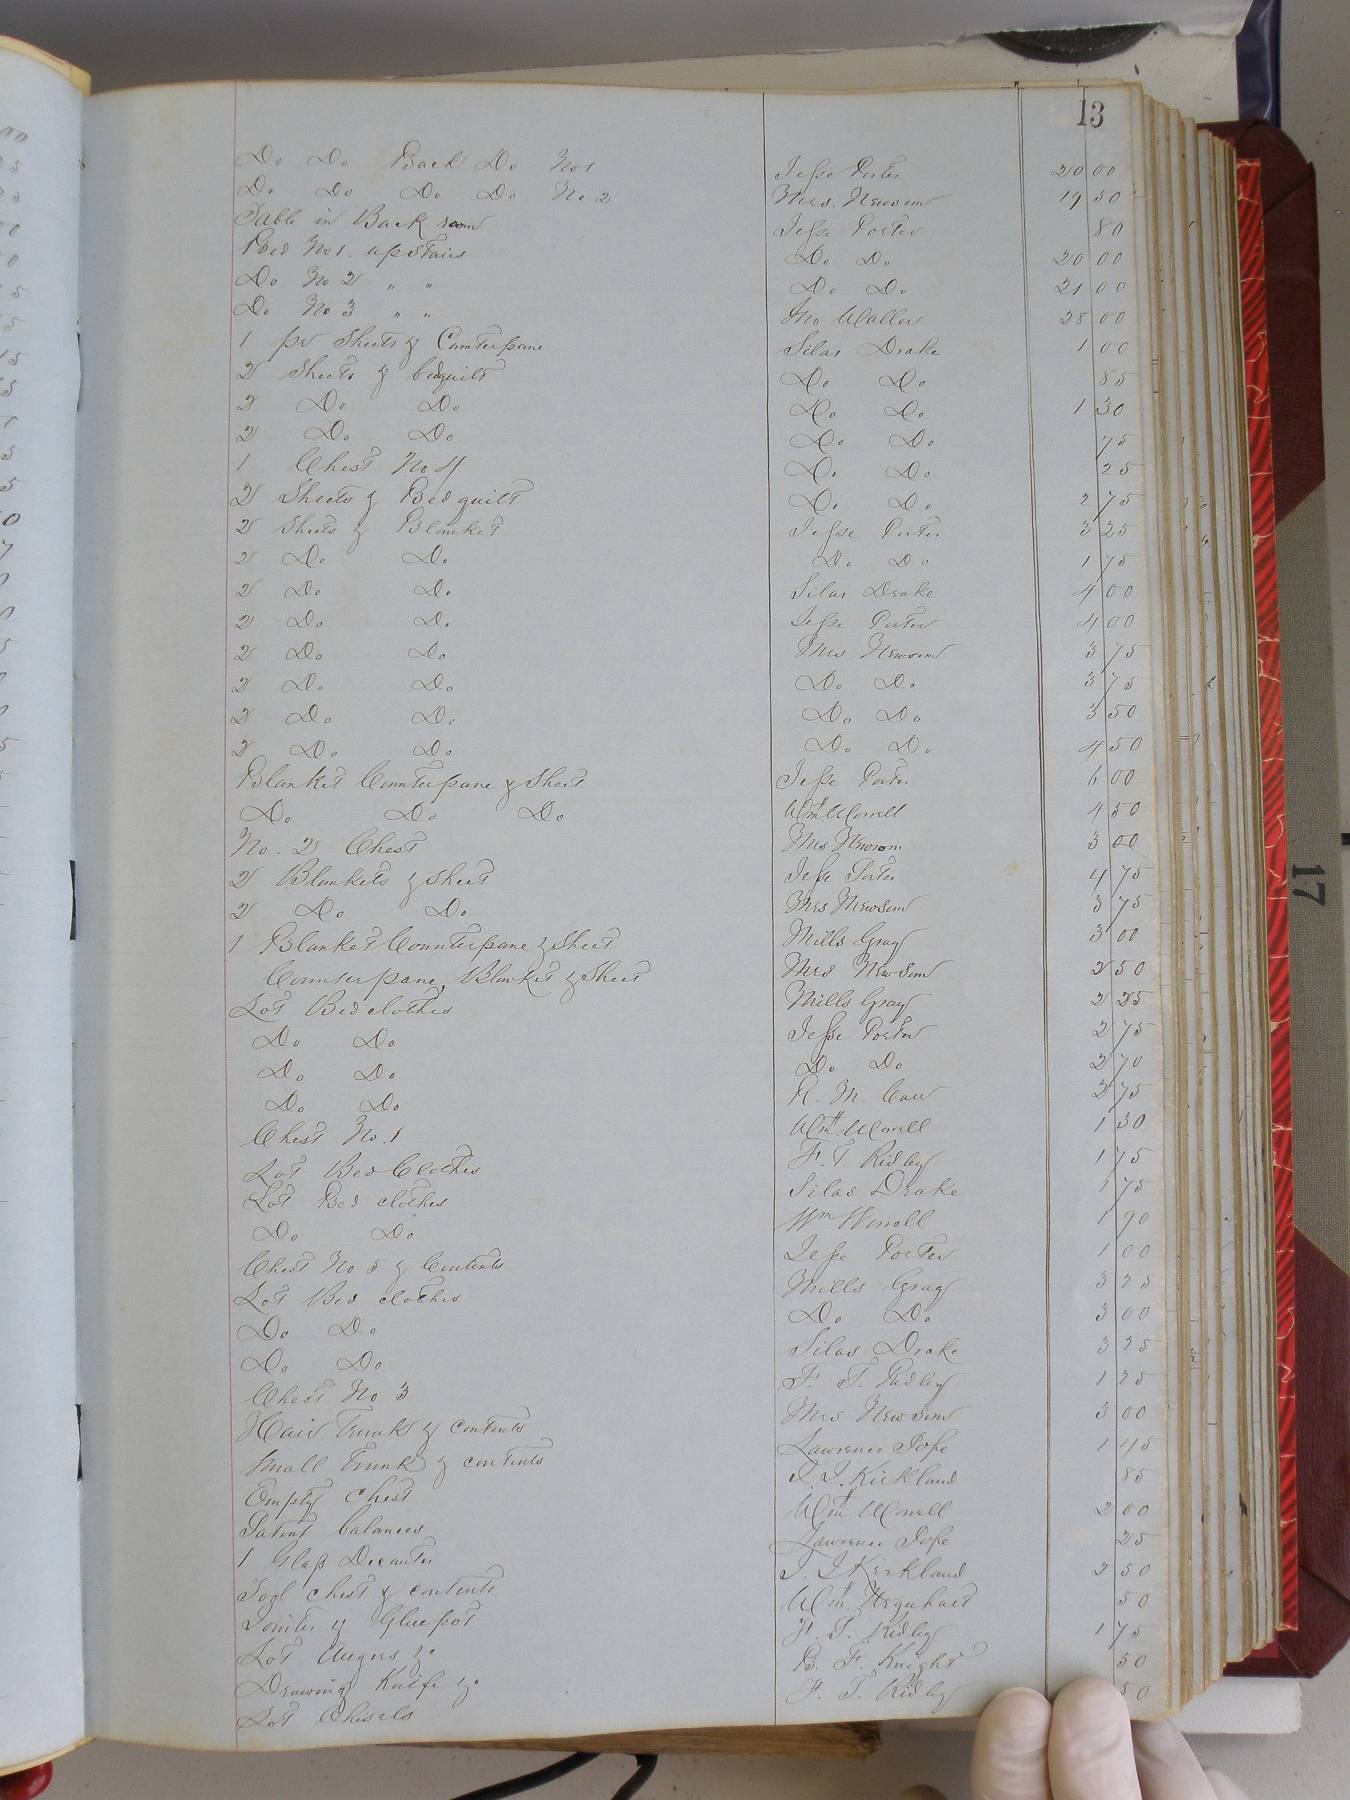 13
Do Do Back Do No 1 Jesse Porter 20 00
Do Do Do Do No 2 Mrs. Newsom 19 50
Table in Back room Jesse Porter 80
Bed No 1. upstairs Do Do 20 00
Do No 2 " " Do Do 21 00
Do No 3 " " Jno Waller 28 00
1 pr Sheets & Counterpane Silas Drake 1 00
2 Sheets & bedquilt Do Do 85
2 Do Do Do Do 1 30
2 Do Do Do Do 75
1 Chest No 4 Do Do 25
2 Sheets & Bedquilt Do Do 2 75
2 Sheets & Blanket Jesse Porter 3 25
2 Do Do Do Do 1 75
2 Do Do Silas Drake 4 00
2 Do Do Jesse Porter 4 00
2 Do Do Mrs Newsom 3 75
2 Do Do Do Do 3 75
2 Do Do Do Do 3 50
2 Do Do Do Do 4 50
Blanket Counterpane & Sheet Jesse Porter 6 00
Do Do Do Wm Worrell 4 50
No. 2 Chest Mrs Newsom 3 00
2 Blankets & Sheet Jesse Porter 4 75
2 Do Do Mrs Newsom 3 75
1 Blanket Counterpane & Sheet Mills Gray 3 00
Counterpane, Blanket & Sheet Mrs Newsom 2 50
Lot Bed clothes Mills Gray 2 25
Do Do Jesse Porter 2 75
Do Do Do Do 2 70
Do Do R. M. 2 75
Chest No. 1 Wm Worrell 1 30
Lot Bed Clothes F. T. Ridley 1 75
Lot Bed clothes Silas Drake 1 75
Do Do Wm Worrell 1 90
Chest No 5 & Contents Jesse Porter 1 00
Lot Bed clothes Mills Gray 3 25
Do Do Do Do 3 00
Do Do Silas Drake 3 25
Chest No 3 F. T. Ridley 1 25
Hair Trunk & contents Mrs Newsom 3 00
Small Trunk & contents Lawrence Pope 1 45
Empty Chest J. J. Kirkland 85
Patent balances Wm Worrell 2 00
1 Glass Decanter Lawrence Pope 25
Tool chest & contents J. J. Kirkland 2 50
Jointer & Gluepot Wm. Urquhart 50
Lot Augers &c F. T. Ridley 1 75
Drawing Knife &c B. F. Knight 50
Lot Chisels F. T. Ridley 50
17